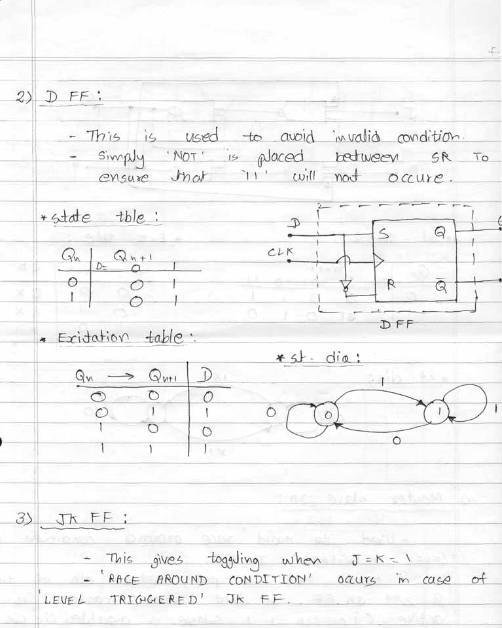 2) D FF :
- This is used to avoid invalid condition.
- Simply 'NOT' is placed between SR To
ensure that '11' will not occure.
* state tble :
Qn Qn+1
D= 0 1
0 0 1
1 0 1
D
CLK
S Q
R Q̅
D FF
* Exitation table :
Qn → Qn+1 D
0 0 0
0 1 1
1 0 0
1 1 1
* st. dia :
1
0 0 1 1
0
3) JK FF :
- This gives toggling when J = K = 1
- 'RACE AROUND CONDITION' occurs in case of
'LEVEL TRIGGERED' JK FF.